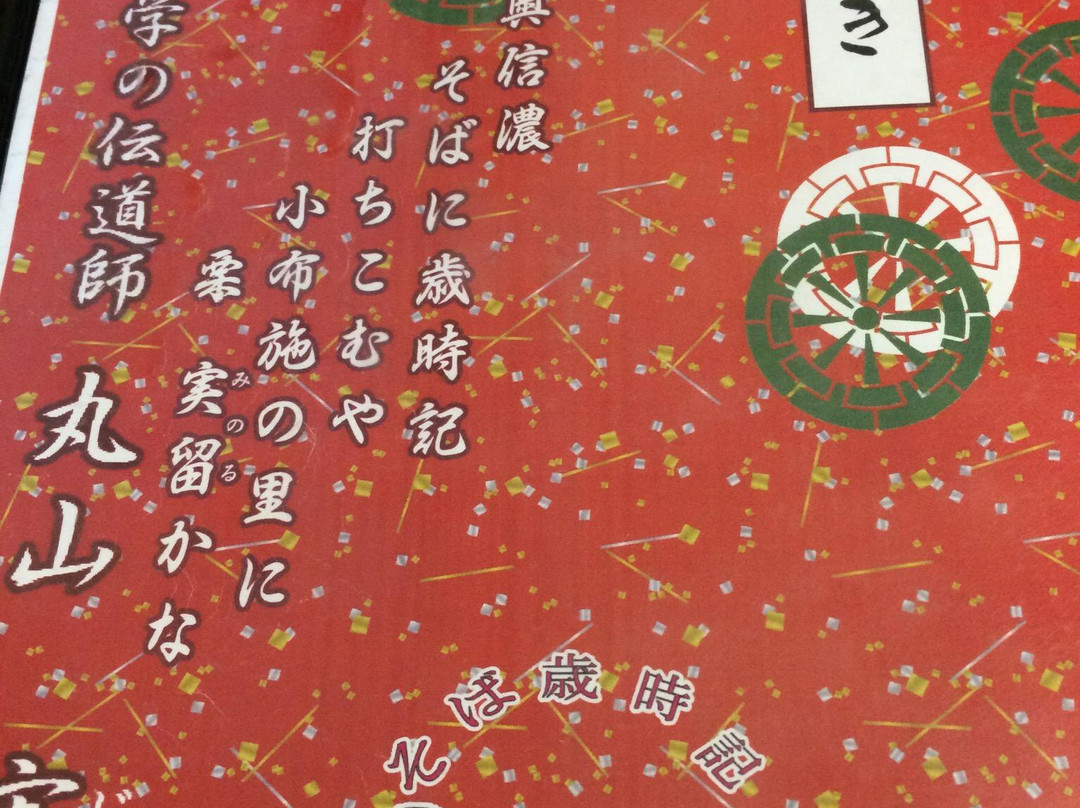 き
奥信濃
そばに歳時記
打ちこむや
小布施の里に
栗 実留かな
みのる
学の伝道師 丸山
そば歳時記